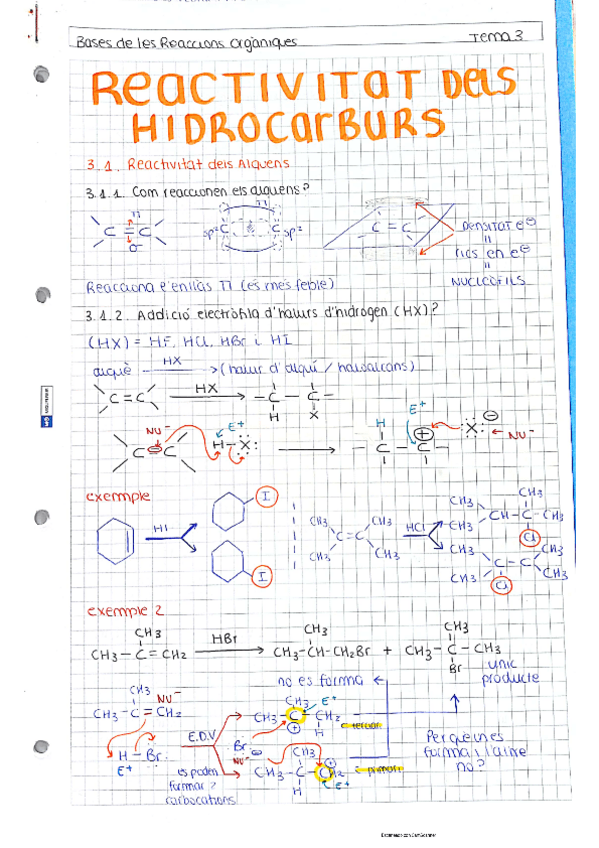 Bases de les Reaccions Orgàniques Tema 3
REACTIVITAT DELS
HIDROCARBURS
3.1. Reactivitat dels Alquens
3.1.1. Com reaccionen els alquens?
π
C = C
σ
π
sp² C C sp²
C = C
Densitat e⊖
=
rics en e⊖
=
NUCLEÒFILS
Reacciona e enllàs π (és més feble)
3.1.2. Addició electròfila d'halurs d'hidrogen (HX)?
(HX) = HF, HCl, HBr i HI
alquè HX (halur d'alquil / haloalcans)
C = C HX - C - C -
H X
NU⁻ E⁺
C = C H - X:
H E⁺ :X: ⊖ NU⁻
- C - C - ⊕
exemple
HI I
I
CH3 CH3
C = C
CH3 CH3
HCl
CH3 CH3
CH - C - CH3
CH3 Cl
CH3 CH3
C - C
CH3 Cl CH3
exemple 2
CH3
CH3 - C = CH2
HBr
CH3
CH3 - CH - CH2Br
+
CH3
CH3 - C - CH3
Br
únic
producte
no es forma
CH3 NU⁻
CH3 - C = CH2
H - Br:
E⁺
E.D.V
es poden
formar 2
carbocations
CH3 E⁺
CH3 - C - CH2
⊕ H
terciari
Br ⊖
NU⁻
CH3 ⊕
CH3 - C - CH2
H E⁺
primari
Per què un es
forma i l'altre
no?
Escaneado con CamScanner